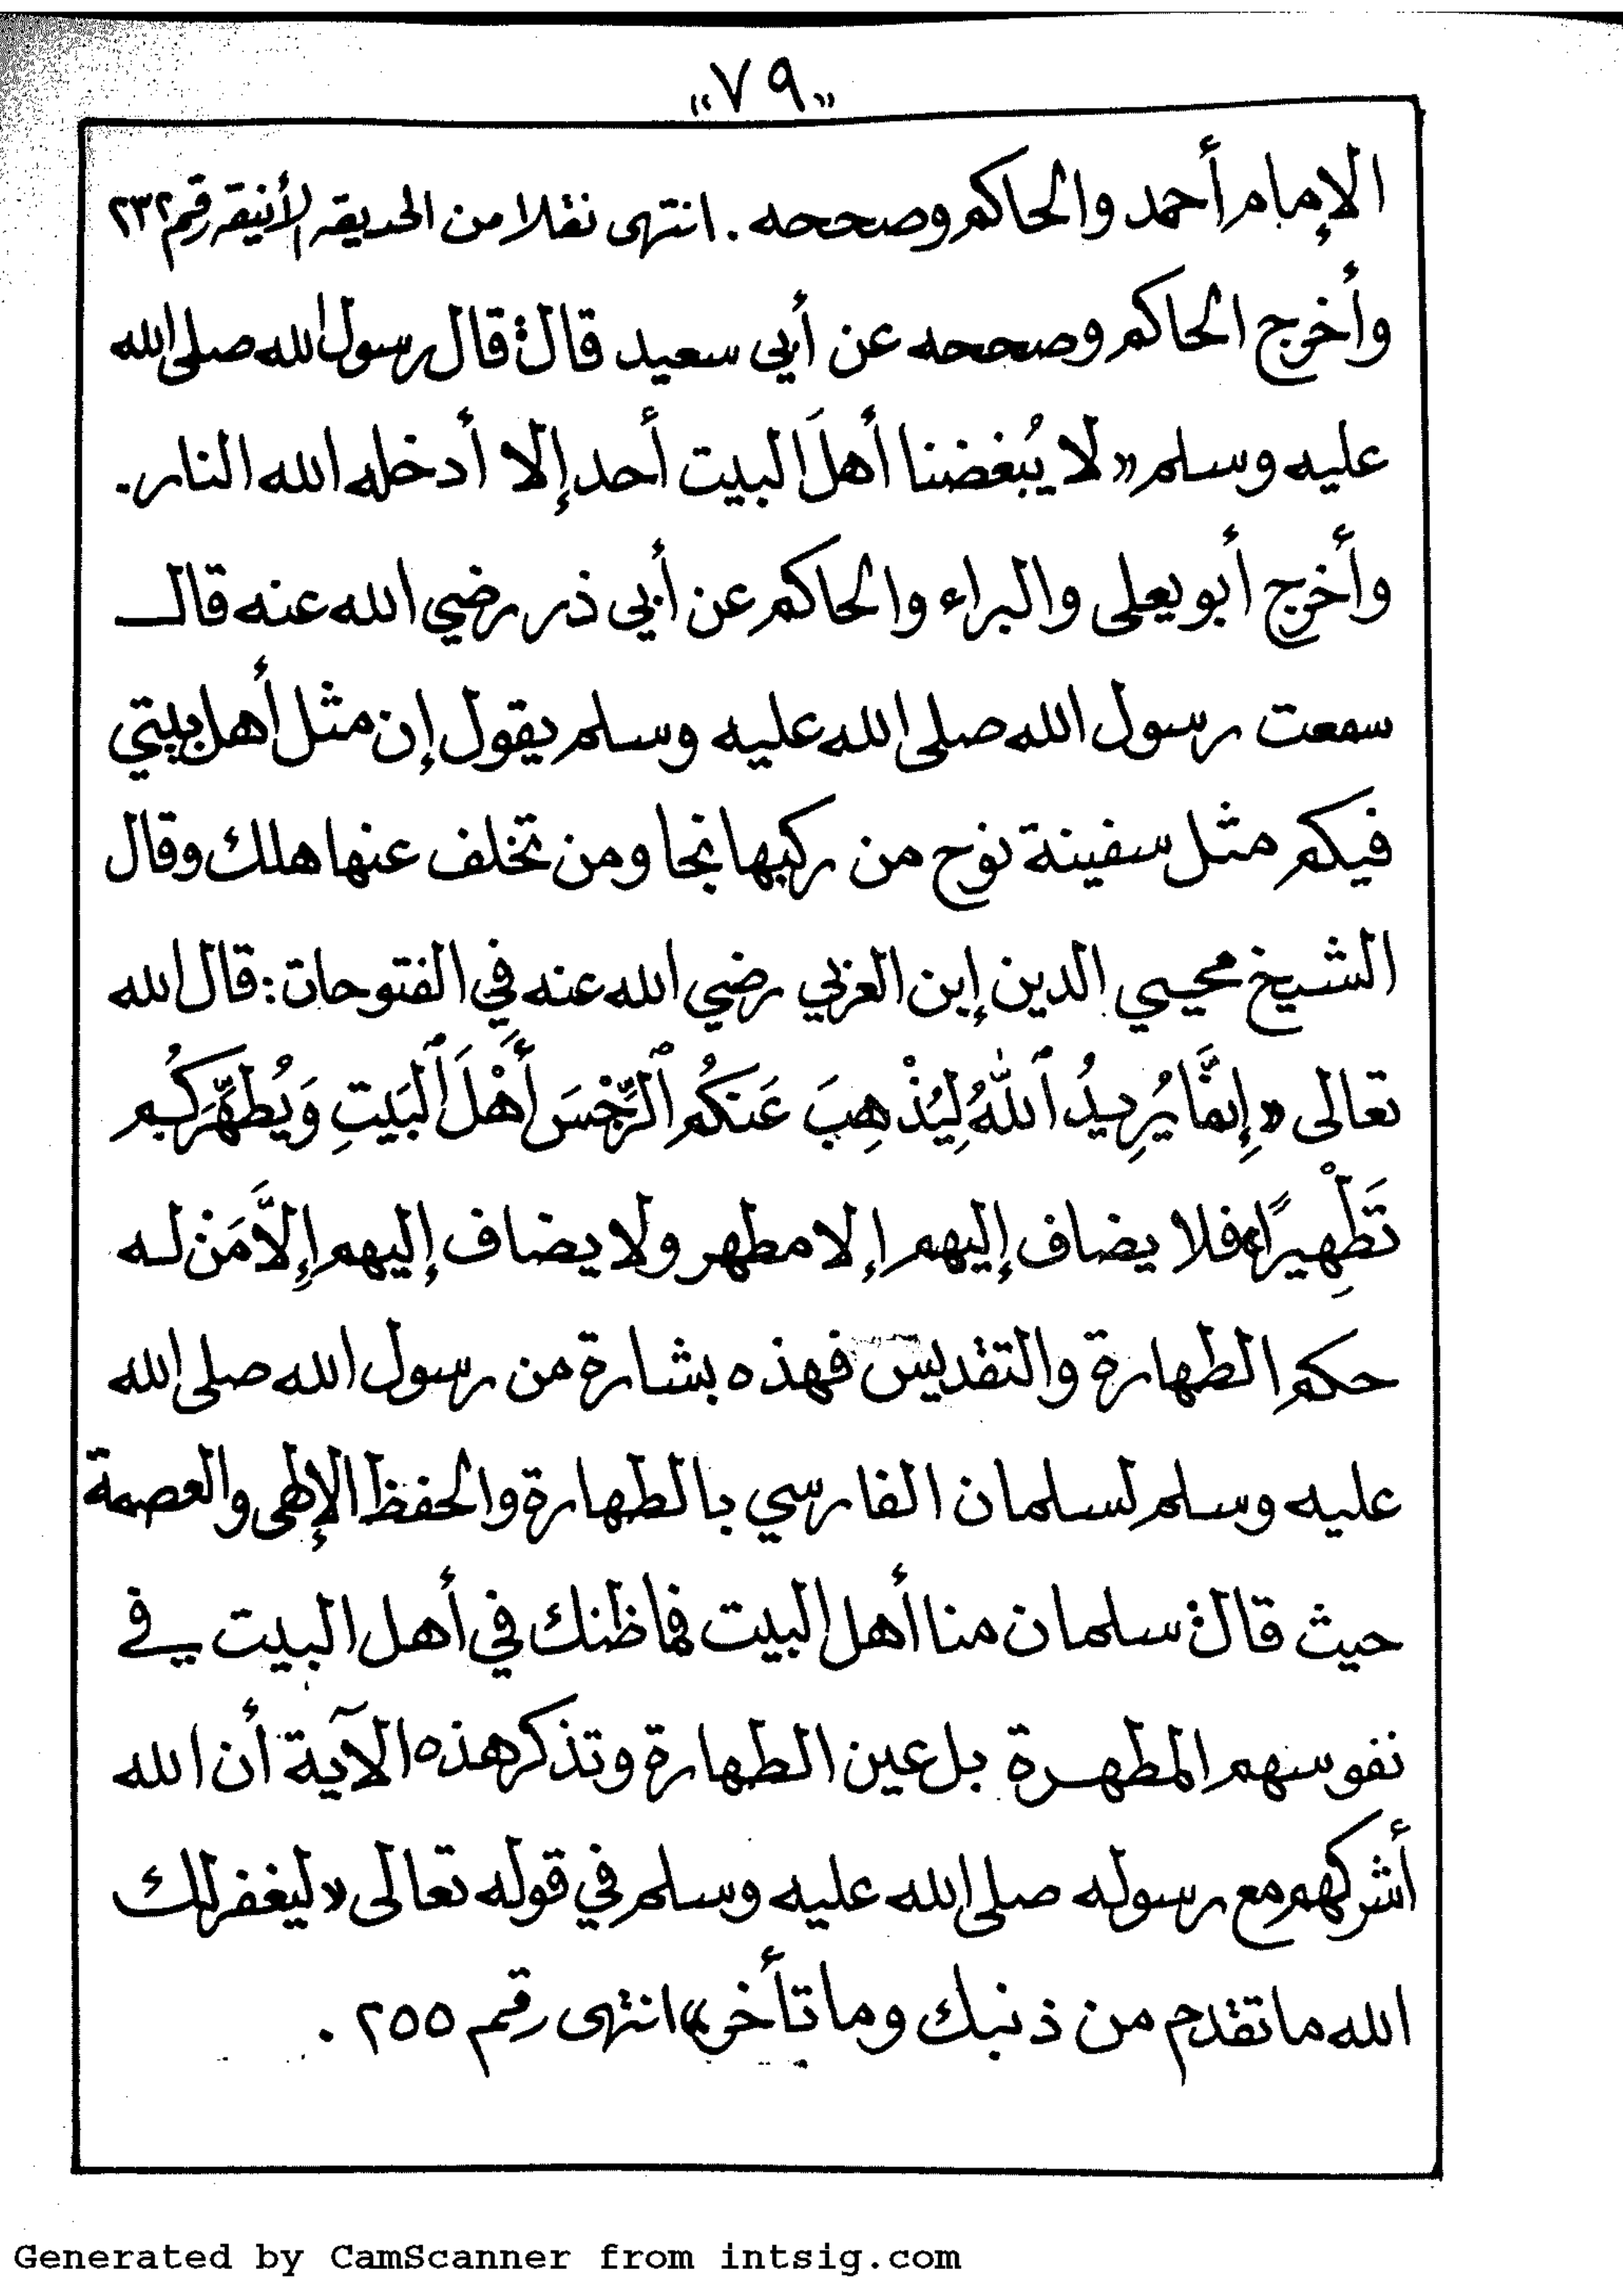 «٧٩»
الإمام أحمد والحاكم وصححه . انتهى نقلا من الحديقة الأنيقة رقم ٢٣٢
وأخرج الحاكم وصححه عن أبي سعيد قال: قال رسول الله صلى الله
عليه وسلم «لا يُبغضنا أهلَ البيت أحد إلا أدخله الله النار.
وأخرج أبو يعلى والبراء والحاكم عن أبي ذر رضي الله عنه قال
سمعت رسول الله صلى الله عليه وسلم يقول إن مثل أهل بيتي
فيكم مثل سفينة نوح من ركبها نجا ومن تخلف عنها هلك وقال
الشيخ محيي الدين إبن العربي رضي الله عنه في الفتوحات: قال الله
تعالى «إِنَّمَا يُرِيدُ ٱللَّهُ لِيُذْهِبَ عَنكُمُ ٱلرِّجْسَ أَهْلَ ٱلْبَيتِ وَيُطَهِّرَكُم
تَطْهِيرًا» فلا يضاف إليهم إلا مطهر ولا يضاف إليهم إلاَّ مَنْ له
حكم الطهارة والتقديس فهذه بشارة من رسول الله صلى الله
عليه وسلم لسلمان الفارسي بالطهارة والحفظ الإلهى والعصمة
حيث قال: سلمان منا أهل البيت فما ظنك في أهل البيت في
نفوسهم المطهرة بل عين الطهارة وتذكر هذه الآية أن الله
أشركهم مع رسوله صلى الله عليه وسلم في قوله تعالى «ليغفر لك
الله ما تقدم من ذنبك وما تأخر» انتهى رقم ٢٥٥ .
Generated by CamScanner from intsig.com